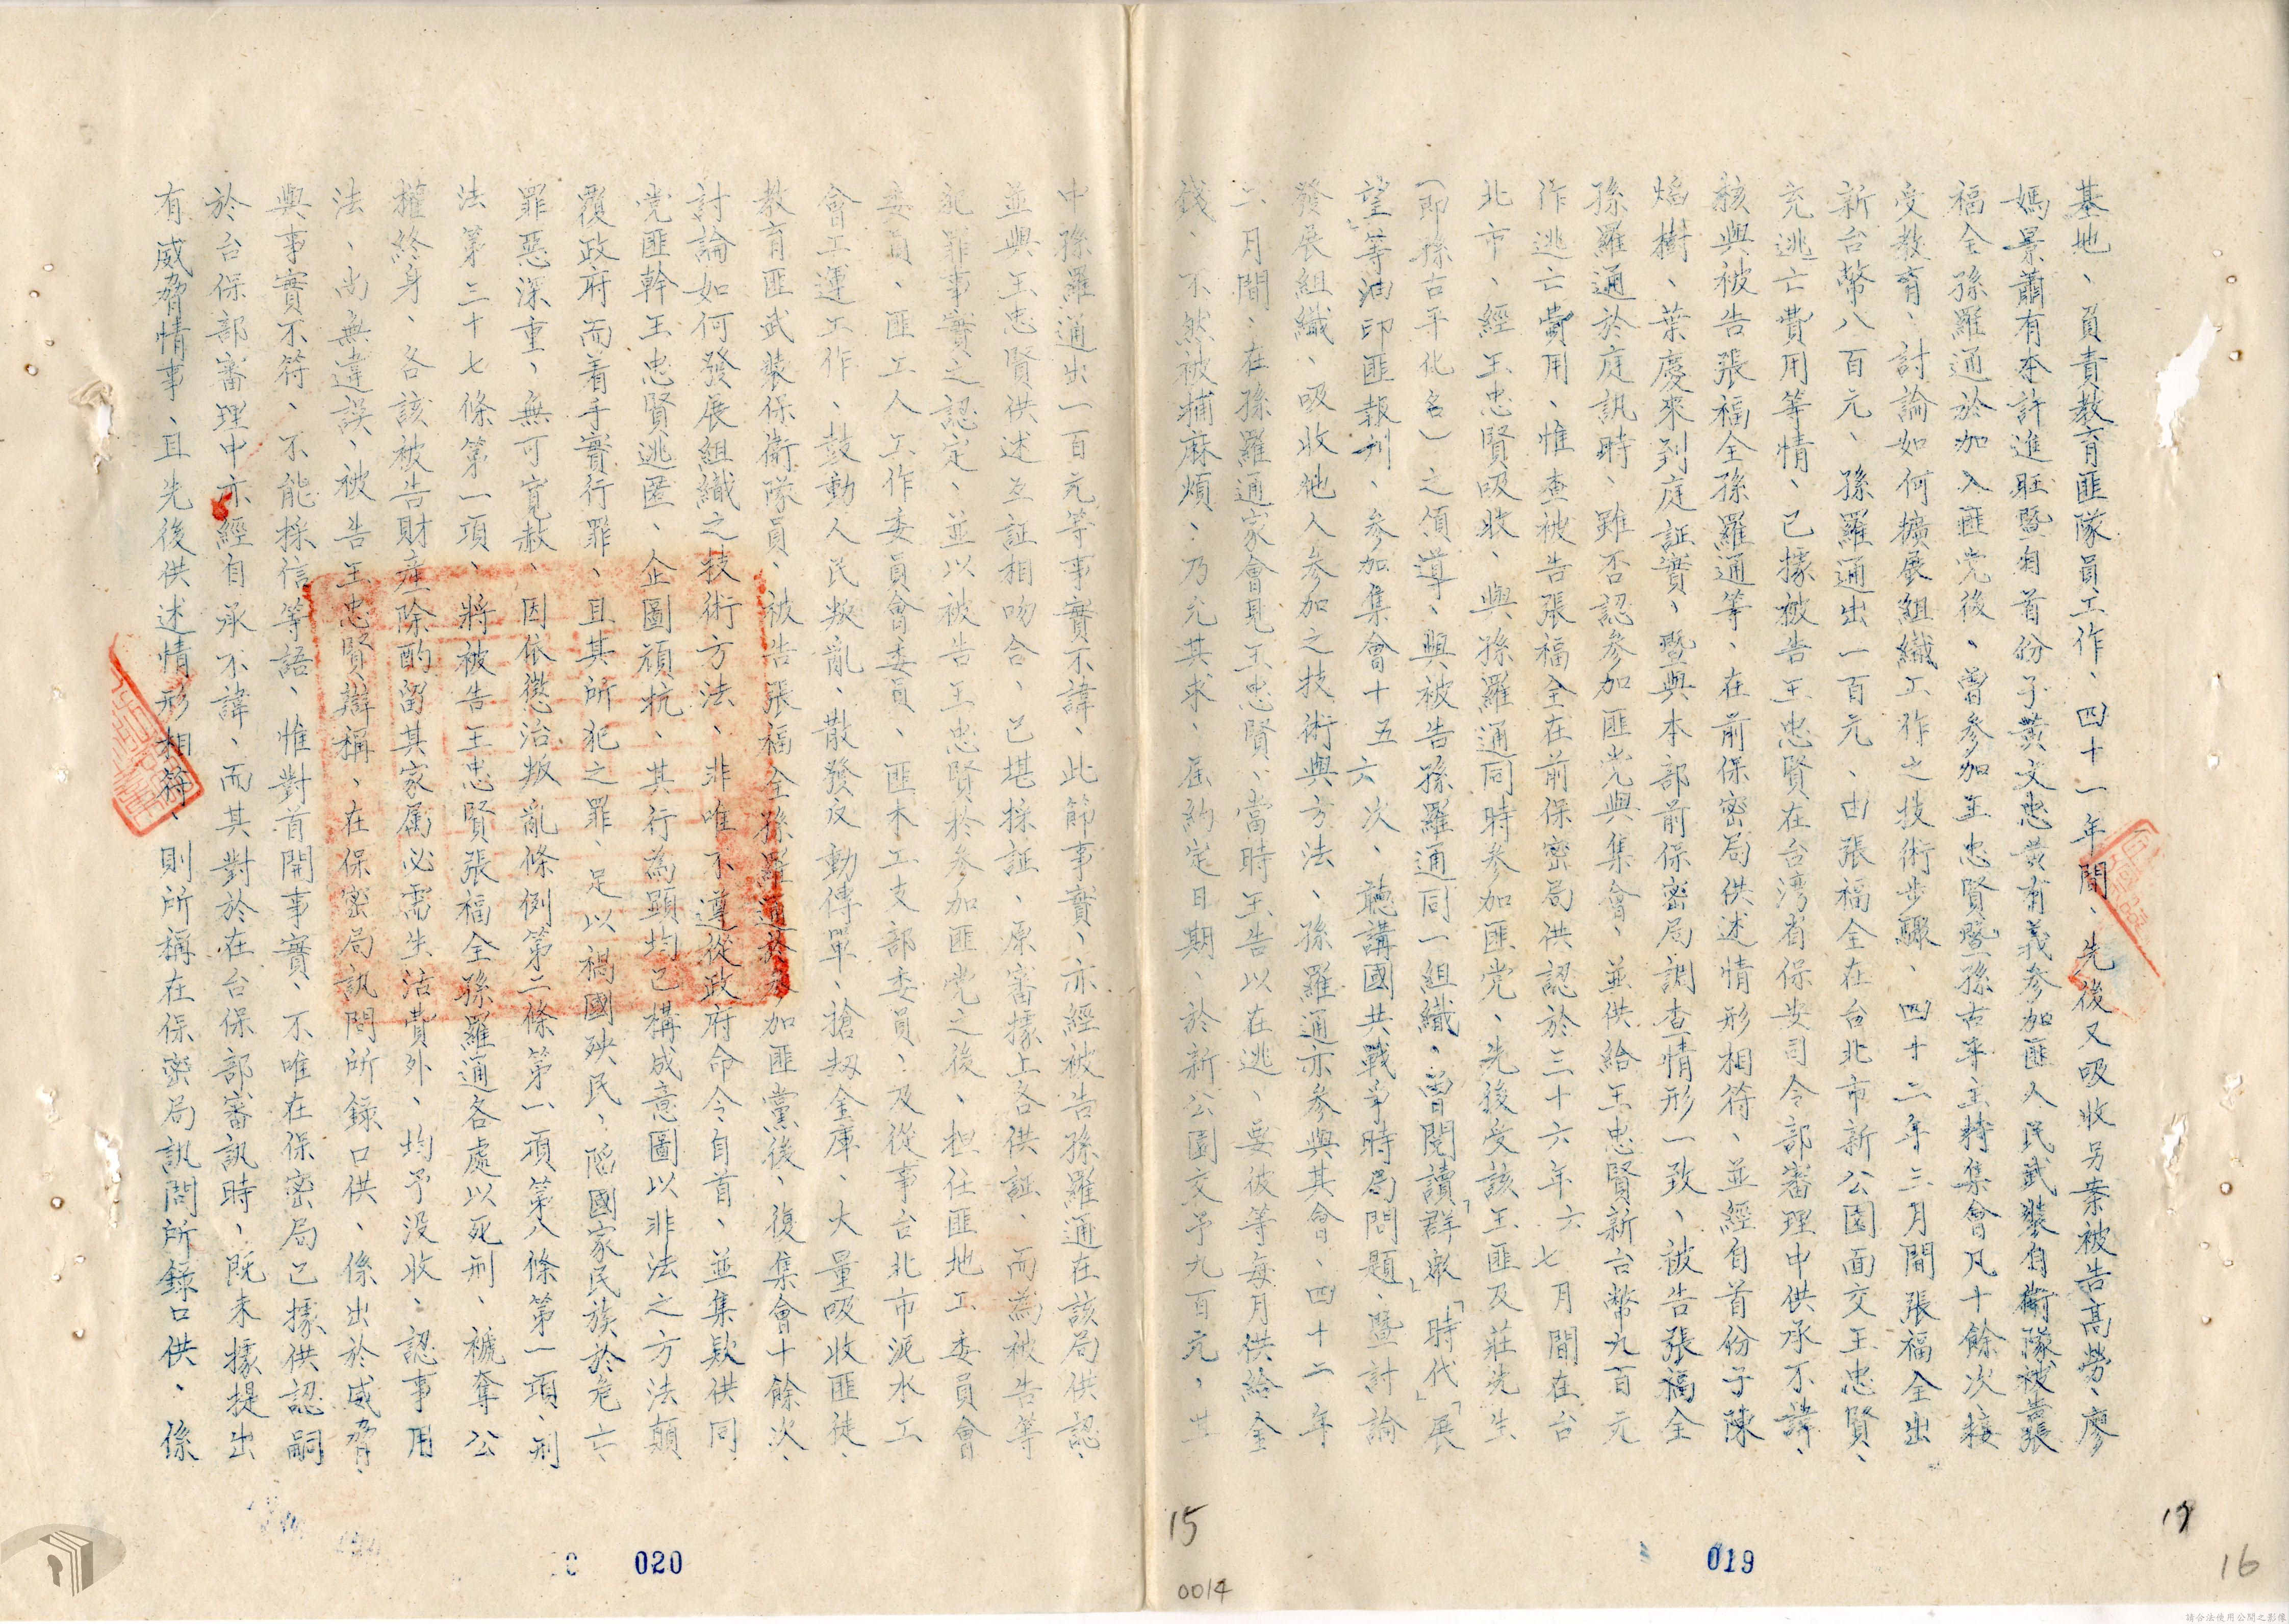 基地、負責教育匪隊員工作、四十一年間、先後又吸收另案被告高勞、廖
媽景蕭有本許進旺暨自首份子黃文忠黃有義參加匪人民武裝自衛隊被告張
福全孫羅通於加入匪党後、曾參加王忠賢暨孫古平主持集會凡十餘次接
受教育、討論如何擴展組織工作之技術步驟、四十二年三月間張福全出
新台幣八百元、孫羅通出一百元、由張福全在台北市新公園面交王忠賢、
充逃亡費用等情、已據被告王忠賢在台湾省保安司令部審理中供承不諱、
核與被告張福全孫羅通等、在前保密局供述情形相符、並經自首份子陳
焰樹、葉慶來到庭証實、暨與本部前保密局調查情形一致、被告張福全
孫羅通於庭訊時、雖否認參加匪党與集會、並供給王忠賢新台幣九百元
作逃亡費用、惟查被告張福全在前保密局供認於三十六年六七月間在台
北市、經王忠賢吸收、與孫羅通同時參加匪党、先後受該王匪及莊先生
(即孫古平化名)之領導、與被告孫羅通同一組織、曾閱讀「群眾」「時代」「展
望」等油印匪報刊、參加集會十五六次、聽講國共戰爭時局問題、暨討論
發展組織、吸收他人參加之技術與方法、孫羅通亦參與其會、四十二年
二月間、在孫羅通家會見王忠賢、當時王告以在逃、要彼等每月供給金
錢、不然被捕麻煩、乃允其求、屆約定日期、於新公園交予九百元、其
中孫羅通出一百元等事實不諱、此節事實、亦經被告孫羅通在該局供認、
並與王忠賢供述互証相吻合、已堪採証、原審據上各供証、而為被告等
犯罪事實之認定、並以被告王忠賢於參加匪党之後、担任匪地工委員會
委員、匪工人工作委員會委員、匪木工支部委員、及從事台北市泥水工
會工運工作、鼓動人民叛亂、散發反動傳單、搶刼金庫、大量吸收匪徒、
教育匪武裝保衛隊員、被告張福全孫羅通於參加匪黨後、復集會十餘次、
討論如何發展組織之技術方法、非唯不遵從政府命令自首、並集欵供同
党匪幹王忠賢逃匿、企圖頑抗、其行為顯均已構成意圖以非法之方法顛
覆政府而着手實行罪、且其所犯之罪、足以禍國殃民、陷國家民族於危亡、
罪惡深重、無可寬赦、因依懲治叛亂條例第二條第一項第八條第一項、刑
法第三十七條第一項、將被告王忠賢張福全孫羅通各處以死刑、褫奪公
權終身、各該被告財產除酌留其家属必需生活費外、均予没收、認事用
法、尚無違誤、被告王忠賢辯稱、在保密局訊問所錄口供、係出於威脅、
與事實不符、不能採信等語、惟對首開事實、不唯在保密局已據供認嗣
於台保部審理中亦經自承不諱、而其對於在台保部審訊時、既未據提出
有威脅情事、且先後供述情形相符、則所稱在保密局訊問所錄口供、係
15
0014
17
16
019
020
請合法使用公開之影像